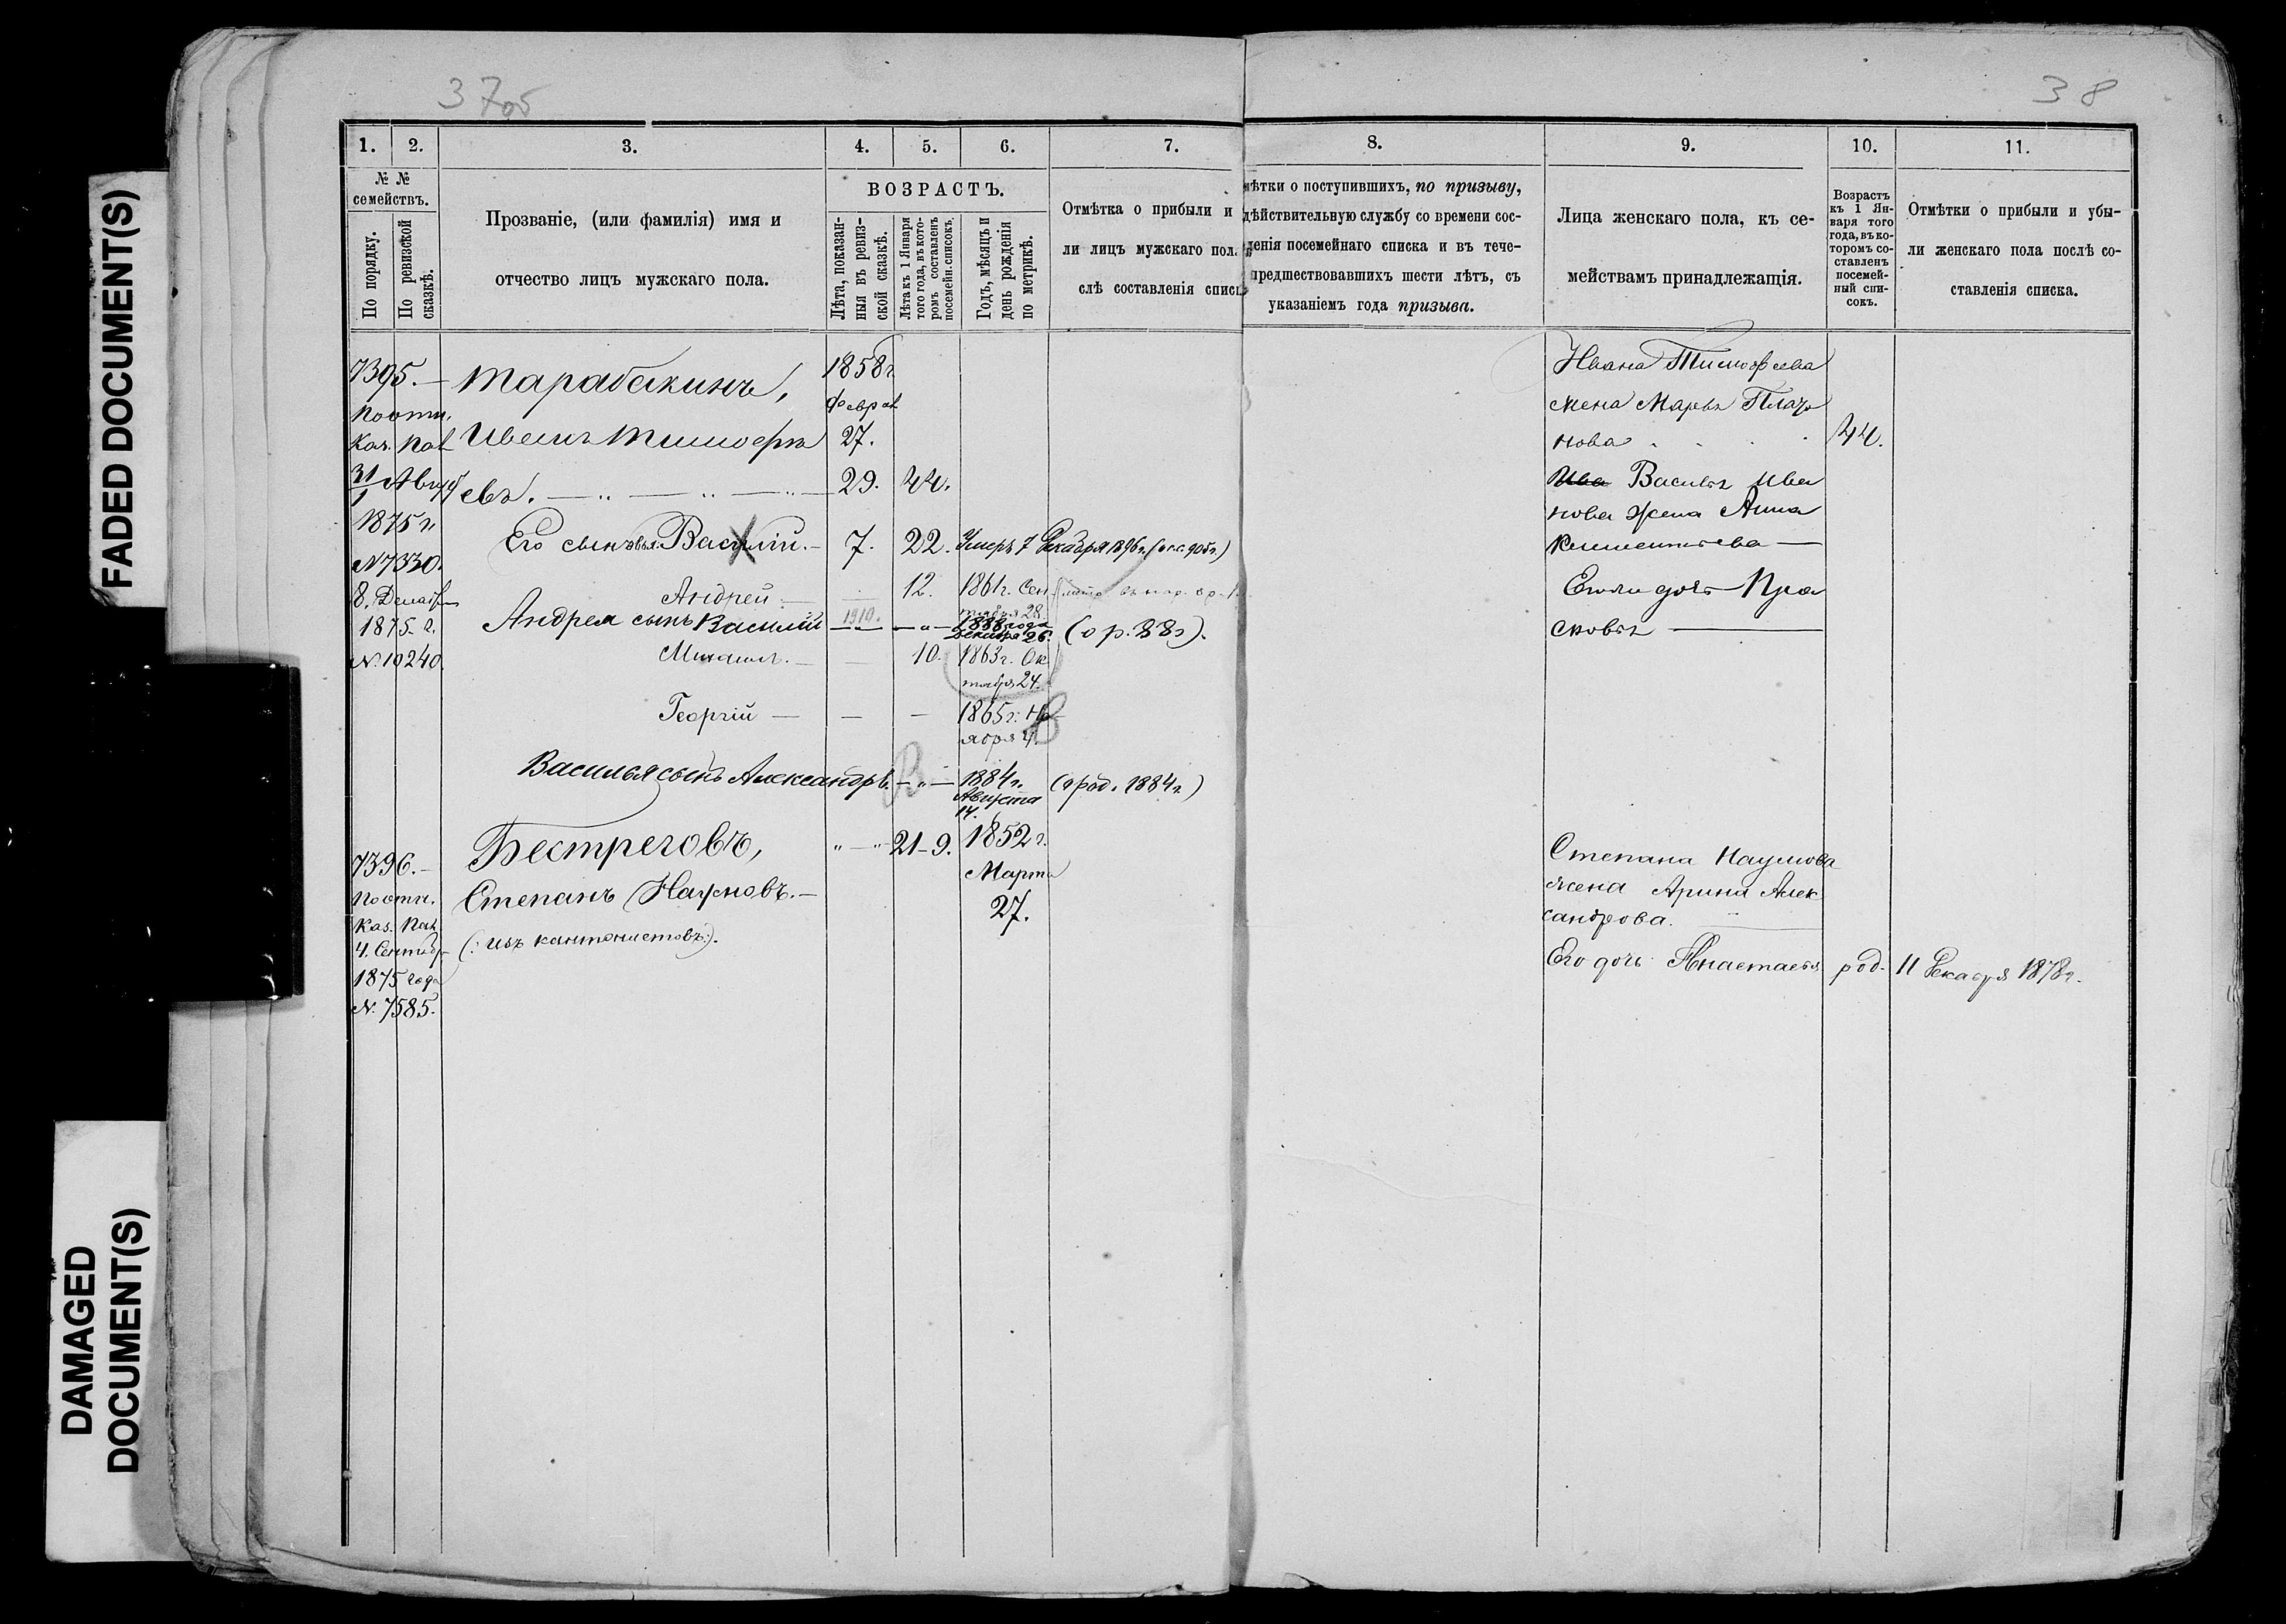 FADED DOCUMENT(S)
DAMAGED
DOCUMENT(S)
37об
38
1. 2. 3. 4. 5. 6. 7. 8. 9. 10. 11.
№ №
семействъ.
По порядку.
По ревизской
сказкѣ.
Прозваніе, (или фамилія) имя и
отчество лицъ мужскаго пола.
ВОЗРАСТЪ.
Лѣта, показан-
ныя въ ревиз-
ской сказкѣ.
Лѣта къ 1 Января
того года, въ кото-
ромъ составленъ
посемейн. списокъ.
Годъ, мѣсяцъ и
день рожденія
по метрикѣ.
Отмѣтка о прибыли и
ли лицъ мужскаго пол.
слѣ составленія спис
мѣтки о поступившихъ, по призыву,
дѣйствительную службу со времени сос-
ленія посемейнаго списка и въ тече-
предшествовавшихъ шести лѣтъ, съ
указаніемъ года призыва.
Лица женскаго пола, къ се-
мействамъ принадлежащія.
Возрастъ
къ 1 Ян-
варя того
года, въ ко-
торомъ со-
ставленъ
посемей-
ный спи-
сокъ.
Отмѣтки о прибыли и убы-
ли женскаго пола послѣ со-
ставленія списка.
7395.
По отн.
Каз. Пал.
31/1 Авгус
1875 г.
№ 7330.
8. Декабря
1875. г.
№ 10240.
Тарабакинъ,
Иванъ Тимофѣ
евъ.
1858 г.
Феврал
27.
29. 44.
Его сыновья: Василій. 7. 22. Умеръ 7 Декабря 1896 г.
Андрей 12. 1861 г. Сен
тября 28.
Андрея сынъ Василій 1910. 1888 года
Декабря 26. (о р. 88 г).
Михаилъ. 10. 1863 г. Ок
тября 24.
Георгій 1865 г. Но
ября 4.
В
Василья сынъ Александръ. 1884 г.
Августа
14.
(о род. 1884 г.)
Ивана Тимофеева
жена Марья Плато
нова 44.
Ива Василья Ива
нова жена Анна
Климентьева
Его дочь Пра
сковья
7396.
По отн.
Каз. Пал.
4. Сентяб
1875 года
№. 7585.
Бестреговъ,
Степанъ Наумовъ.
(: изъ кантонистовъ:).
21-9. 1852 г.
Марта
27.
Степана Наумова
жена Арина Алек
сандрова.
Его дочь Анастасья род. 11 Декабря 1878 г.